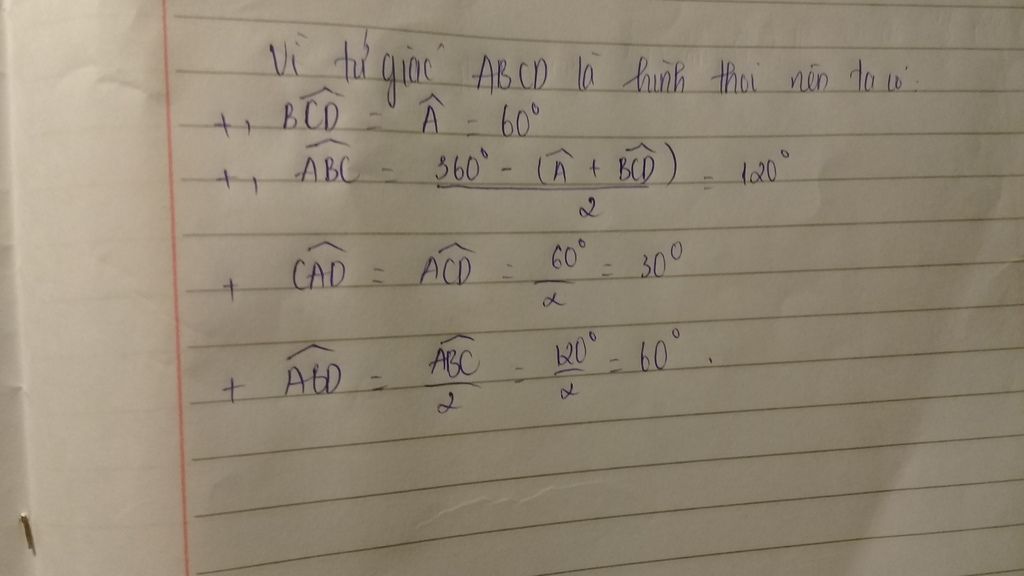 Vì tứ giác ABCD là hình thoi nên ta có:
+, BĈD = Â = 60°
+, AB̂C = (360° - (Â + BĈD)) / 2 = 120°
+ CÂD = AĈD = 60° / 2 = 30°
+ AB̂D = AB̂C / 2 = 120° / 2 = 60°.